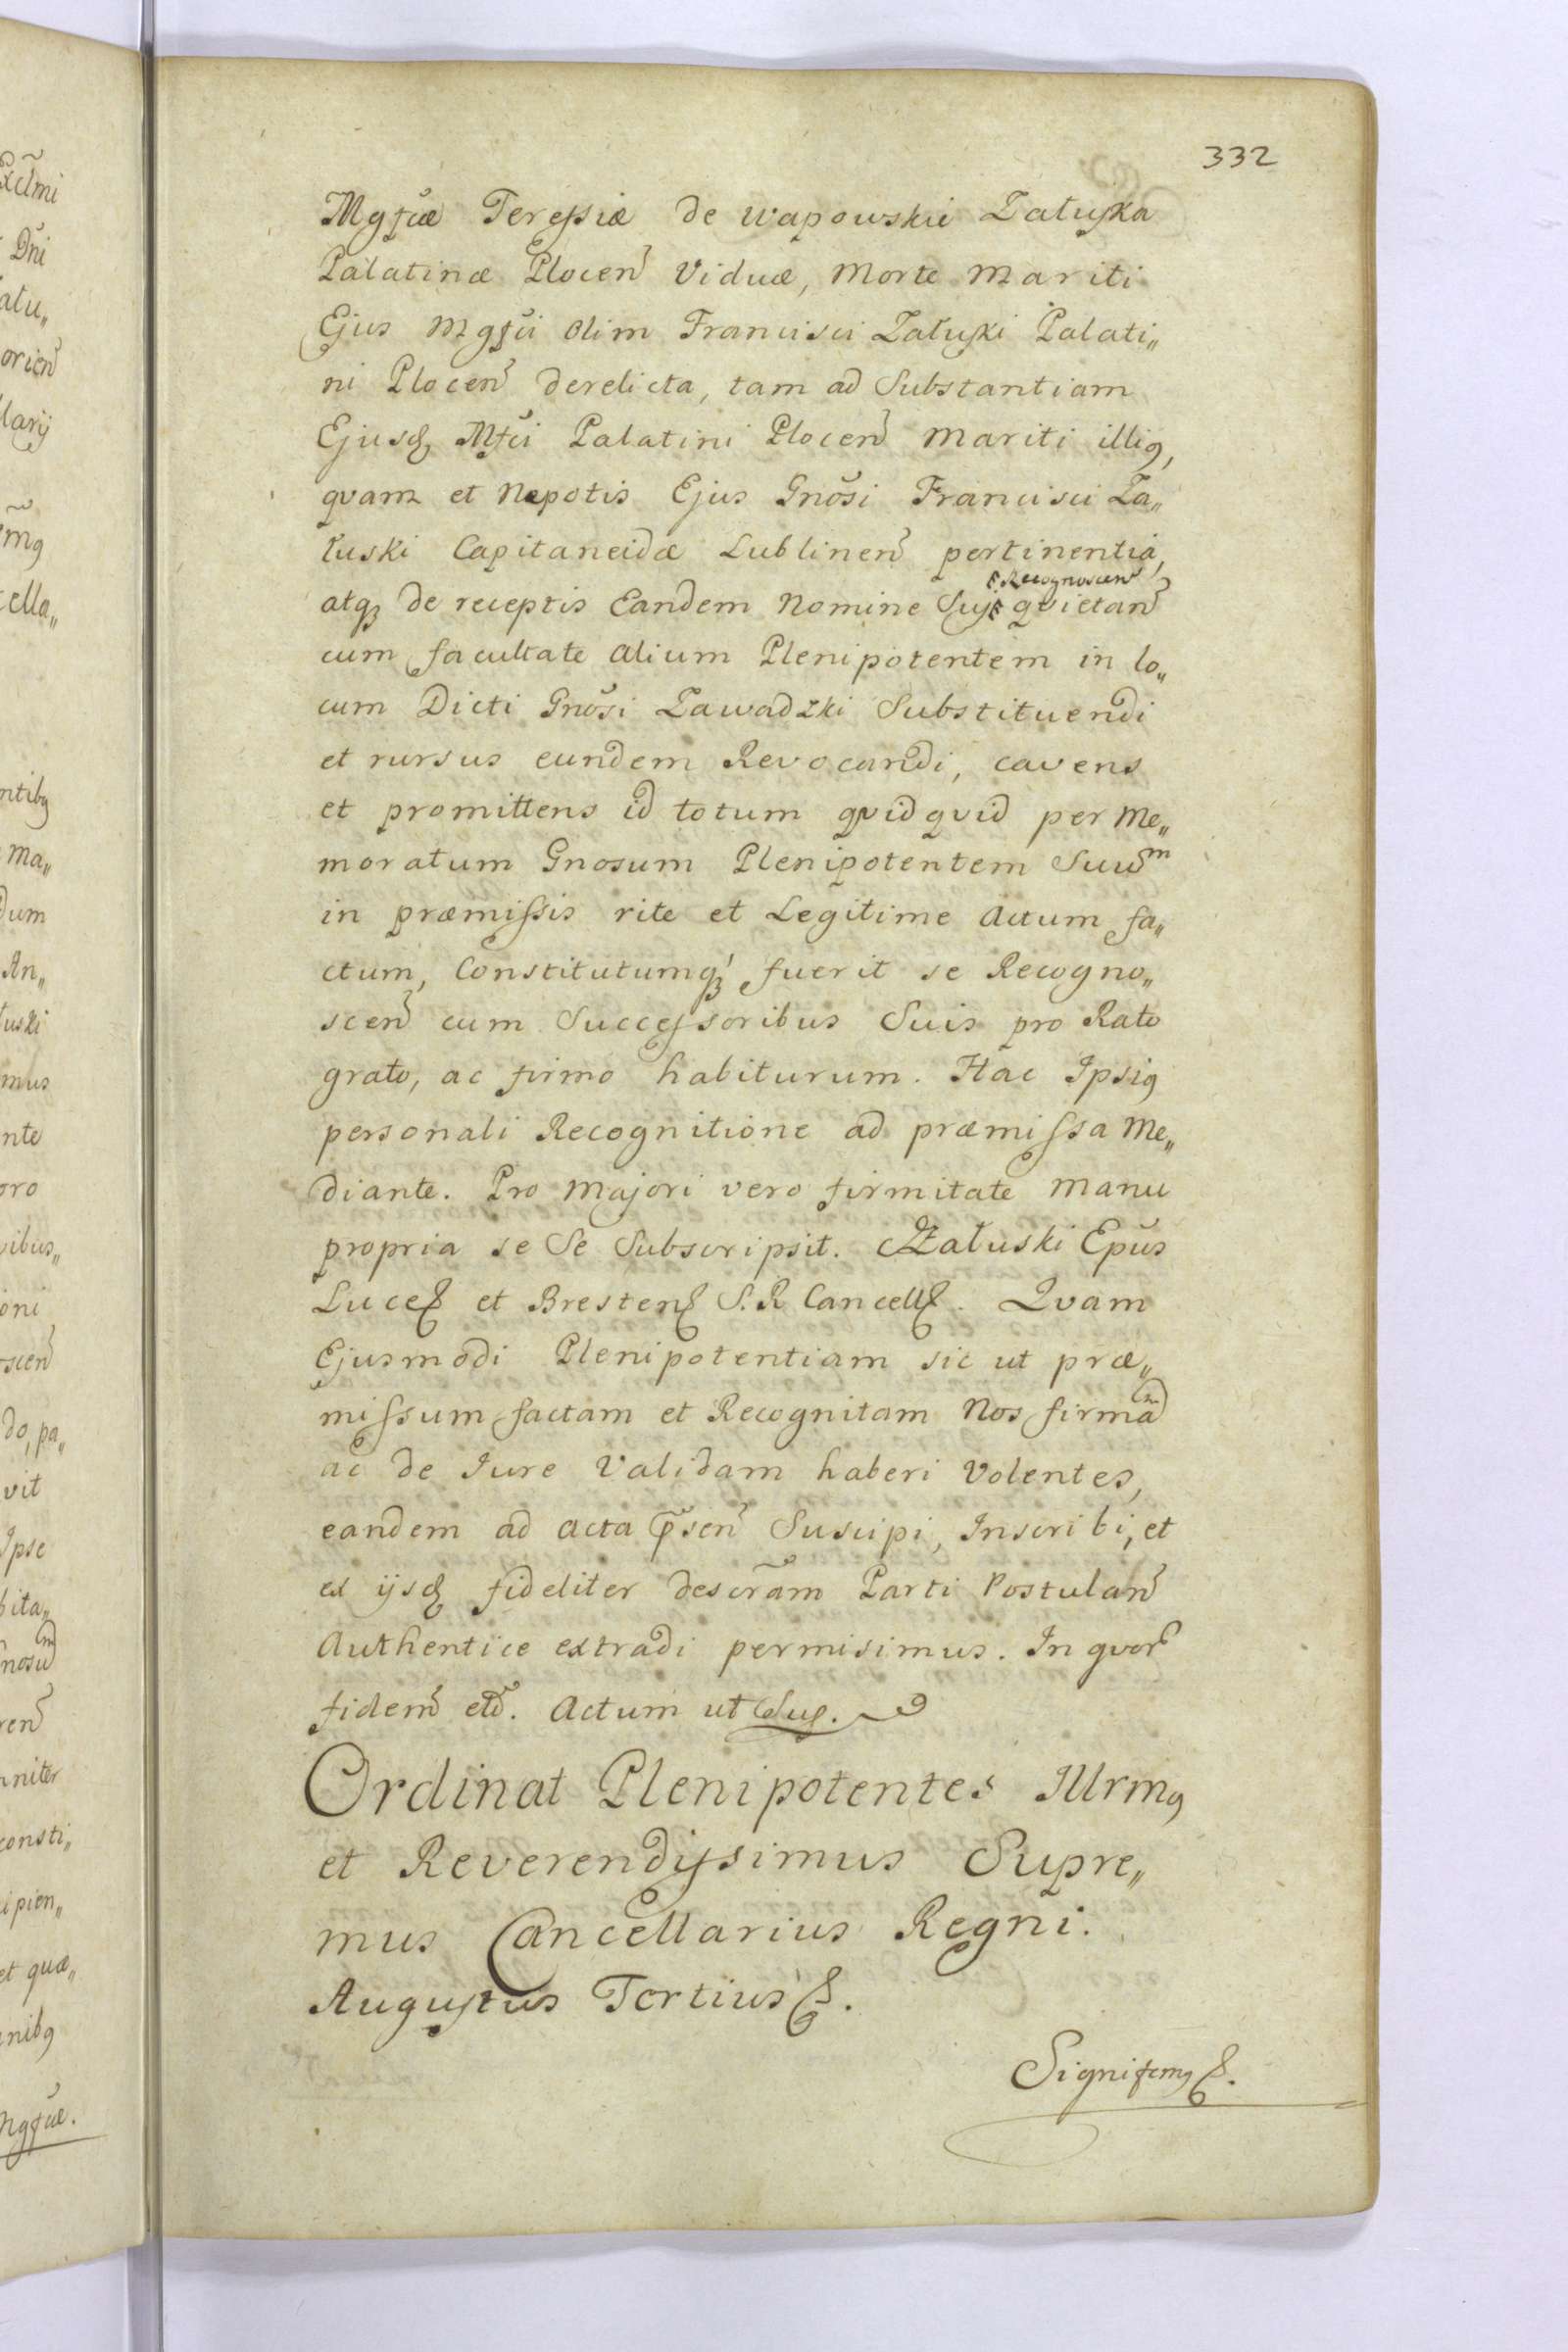 332
Mgfcæ Teressiæ de Wapowskie Załuska
Palatinæ Plocen Viduæ, Morte Mariti
Ejus Mgfci olim Francisci Załuski Palati„
ni Plocen derelicta, tam ad Substantiam
Ejusd Mfci Palatini Plocen Mariti illig,
quam et Nepotis Ejus Gnosi Francisci Za„
łuski Capitaneidæ Lublinen pertinentia,
Recognoscen
atq de receptis Eandem Nomine Suj quietan
cum facultate alium Plenipotentem in lo„
cum Dicti Gnosi Zawadzki Substituendi
et rursus eundem Revocandi, cavens
et promittens id totum quidquid per Me„
moratum Gnosum Plenipotentem Suum
in præmissis rite et Legitime Actum fa„
ctum, Constitutumq fuerit se Recogno„
scen cum Successoribus Suis pro Rato
grato, ac firmo habiturum. Hac Ipsig
personali Recognitione ad præmissa Me„
diante. Pro Majori vero firmitate Manu
propria se Se Subscripsit. AZałuski Epus
Luce et Bresten S. R Cancell. Quam
Ejusmodi Plenipotentiam sic ut præ„
missum factam et Recognitam Nos firmam
ac de Jure Validam haberi Volentes,
eandem ad acta psen Suscipi, Inscribi, et
ex ijsd fideliter descram Parti Postulan
Authentice extradi permisimus. In quor
fidem etc. Actum ut Sup.
Ordinat Plenipotentes Illrmg
et Reverendissimus Supre„
mus Cancellarius Regni.
Augustus Tertius &.
Signifcmg &.
Exclmi
Dni
atu„
orien
larij
mg
cella„
ntibg
Ma„
dum
An„
łuski
mus
nte
oro
vibus„
oni
scen
do, pa„
vit
Ipse
bita„
nosum
ren
niter
consti„
ipien„
et quæ„
nibg
Mgfcæ.